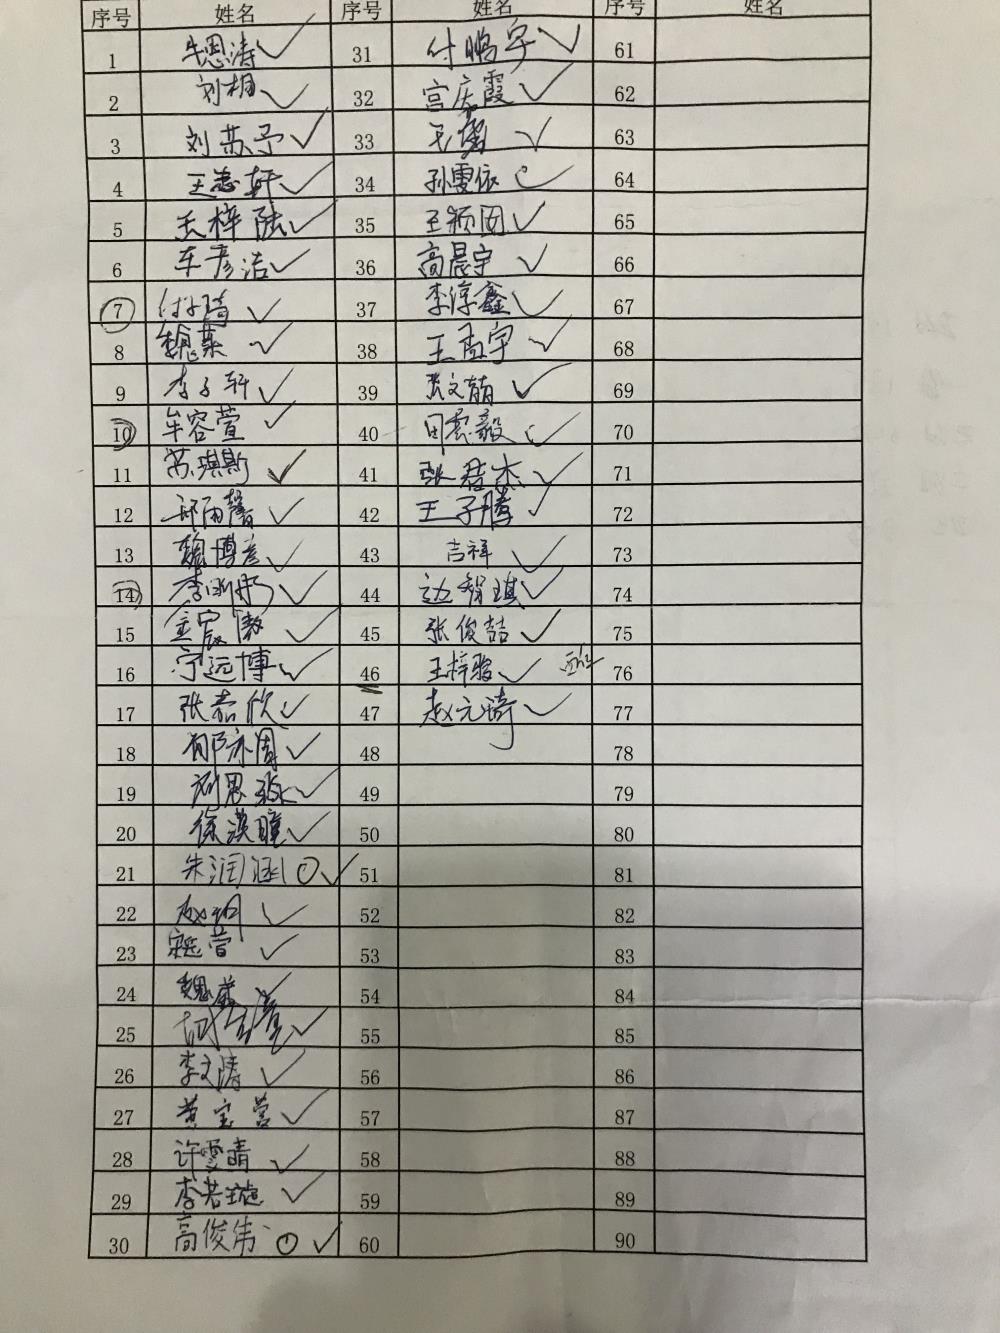 序号 姓名 序号 姓名 序号 姓名
1 牛恩涛 31 付鹏宇 61
2 刘栩 32 宫庆霞 62
3 刘苏予 33 63
4 王志轩 34 孙雯依 64
5 王梓陆 35 王颖囡 65
6 车彦洁 36 高晨宇 66
7 付子琦 37 李淳鑫 67
8 38 王孟宇 68
9 李子轩 39 黄文萌 69
10 牟容萱 40 毅 70
11 苏琪斯 41 张君杰 71
12 邱雨馨 42 王子腾 72
13 魏博彦 43 吉祥 73
14 李 44 边智琪 74
15 45 张俊喆 75
16 宁远博 46 王梓骏 76
17 张嘉欣 47 赵元琦 77
18 郁亦周 48 78
19 思 49 79
20 徐漠瞳 50 80
21 朱润涵 51 81
22 52 82
23 寇萱 53 83
24 魏 54 84
25 55 85
26 李文清 56 86
27 黄宝萱 57 87
28 许雯晴 58 88
29 李若璇 59 89
30 高俊伟 60 90